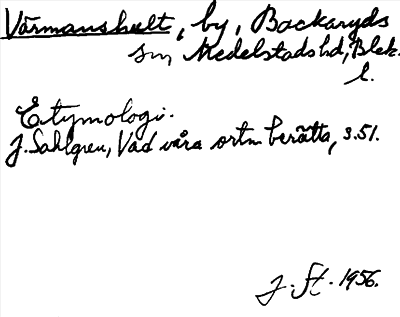 Värmanshult, by, Backaryds
sn, Medelstads hd, Blek.
l.
Etymologi.
J. Sahlgren, Vad våra ortn berätta, s. 51.
J. St. 1956.